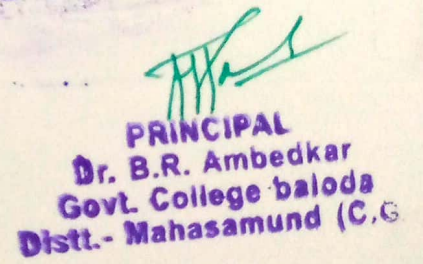 PRINCIPAL
Dr. B.R. Ambedkar
Govt. College baloda
Distt.- Mahasamund (C.G